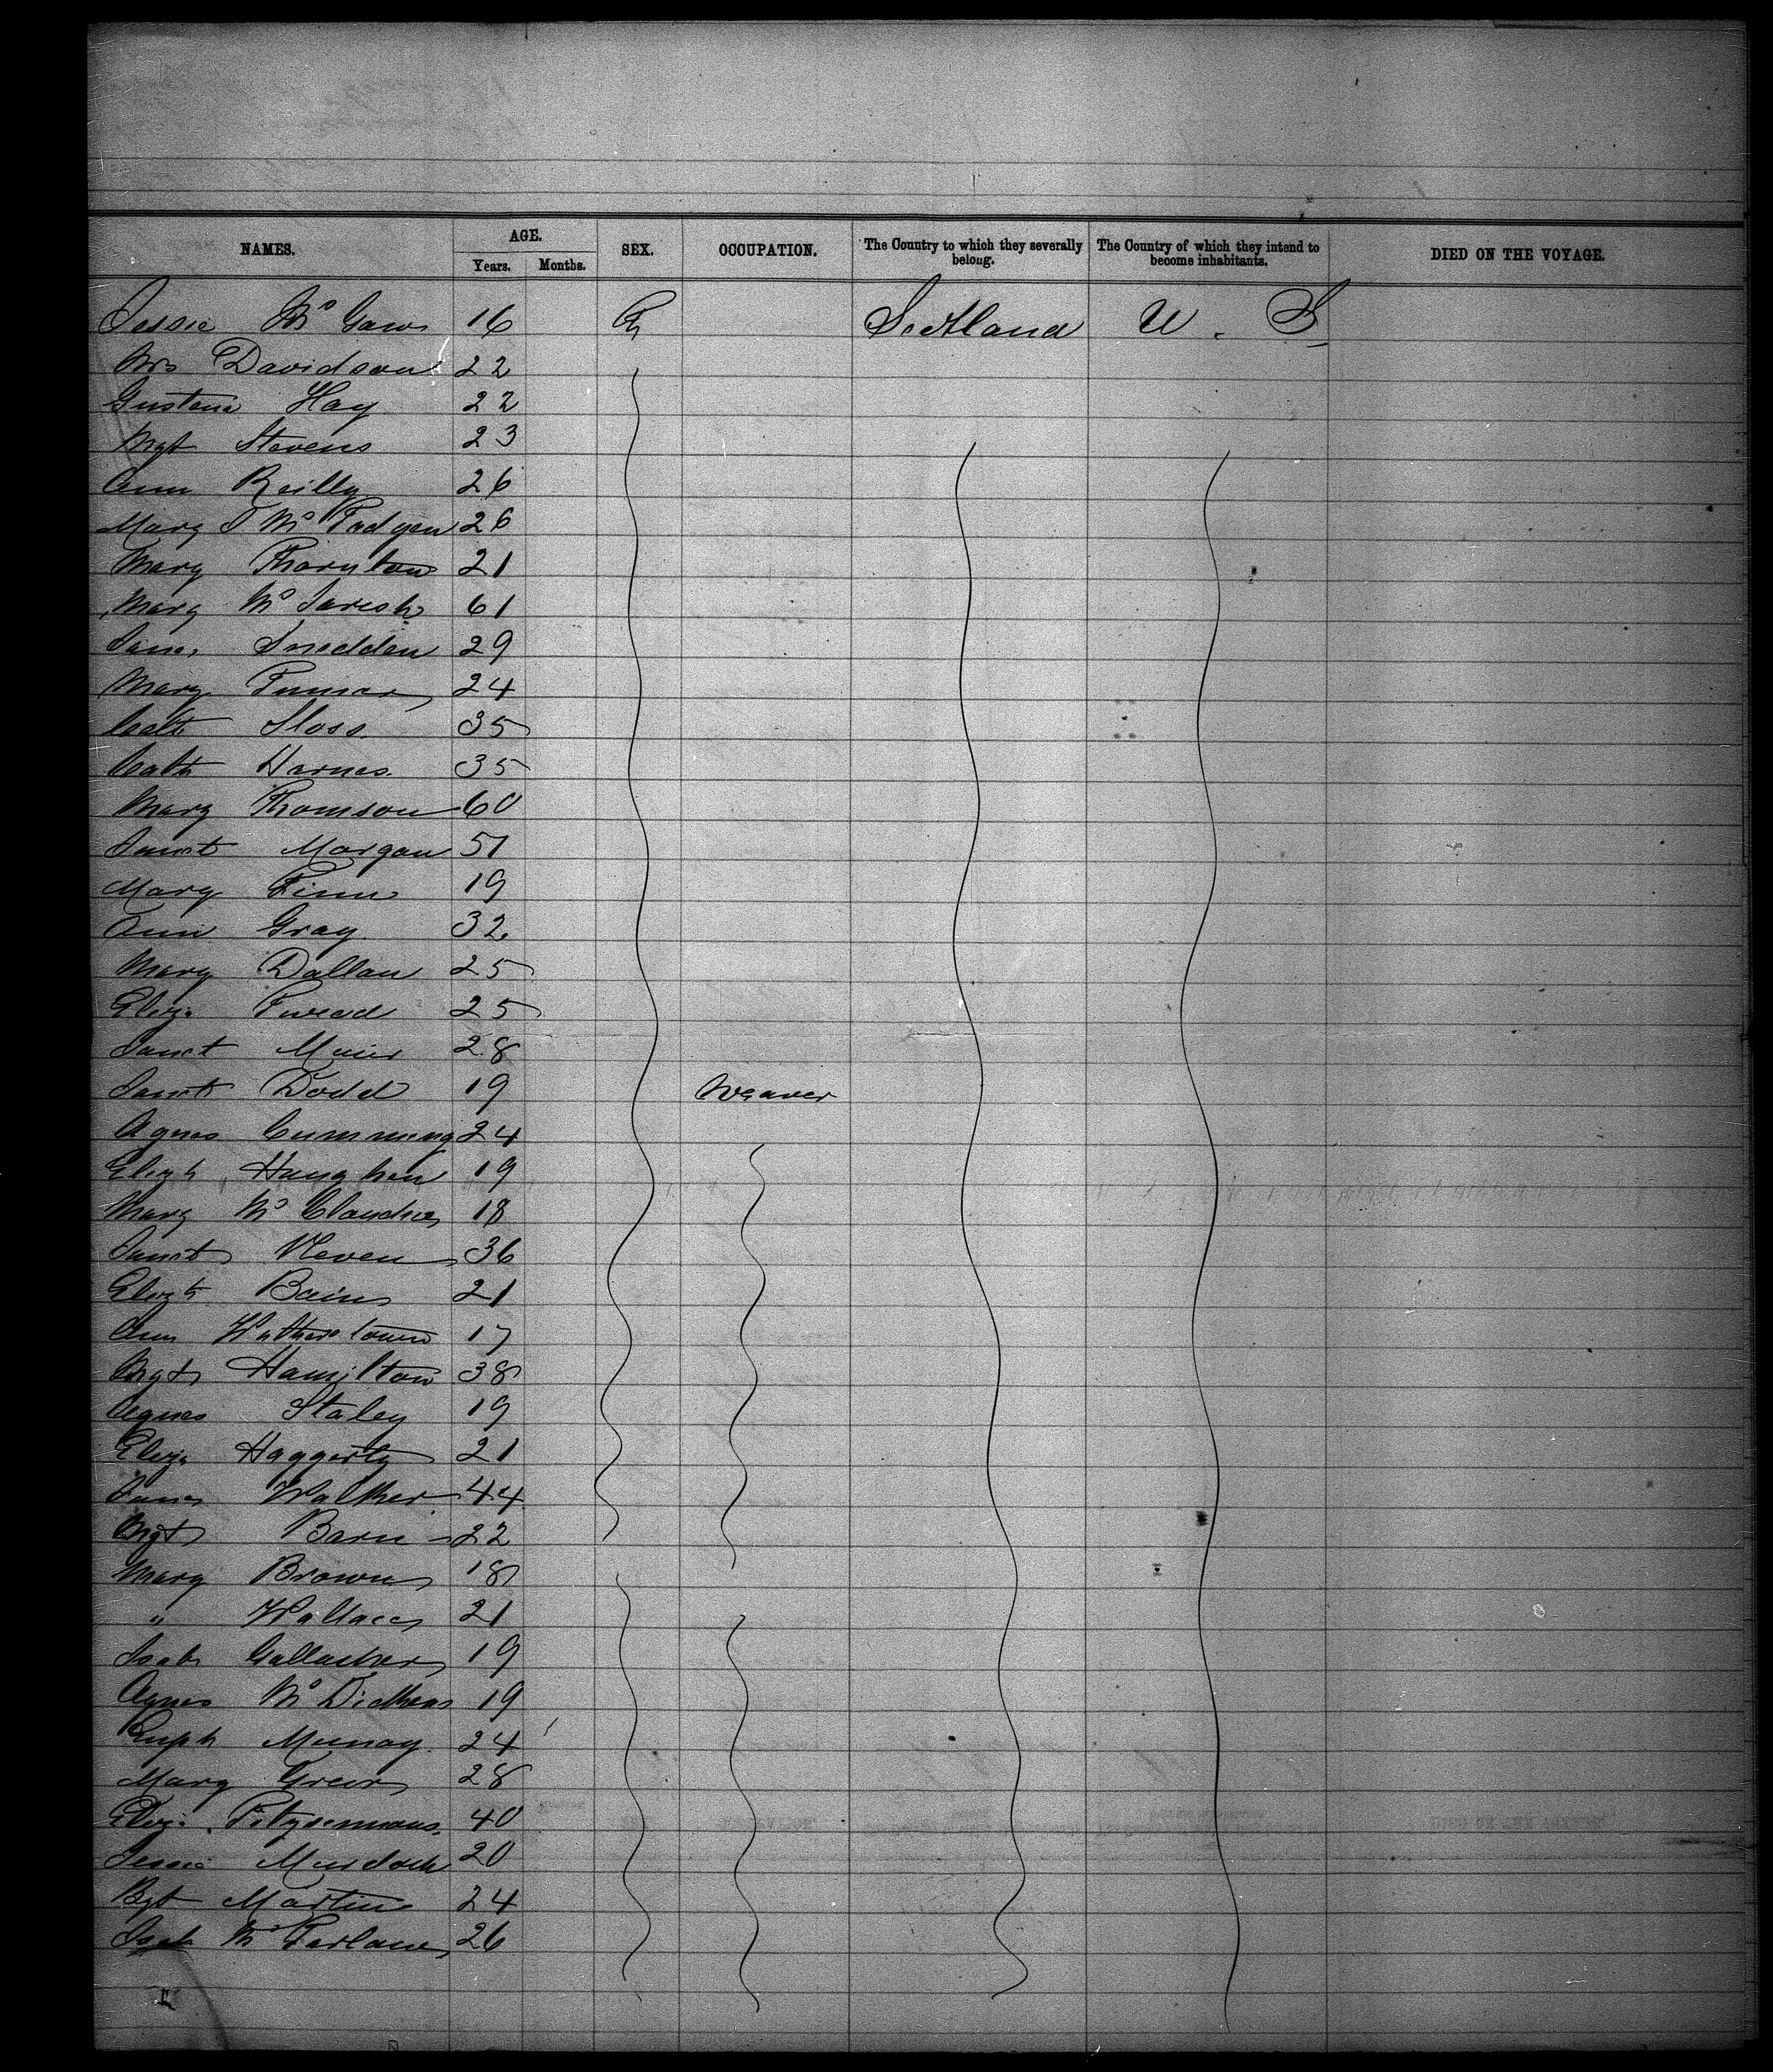 NAMES. AGE. SEX. OCCUPATION. The Country to which they severally belong. The Country of which they intend to become inhabitants. DIED ON THE VOYAGE.
Years. Months.
Jessie McGaw 16 Scotland U. S.
Mrs Davidson 22
Hay 22
Mgt Stevens 23
Ann Reilly 26
Mary J Mc 26
Mary Thornton 21
Mary McTavish 61
Snedden 29
Mary 24
Cath Sloss 35
Cath 35
Mary Thomson 60
Janet Morgan 51
Mary Finn 19
Ann Gray 32
Mary Dallan 25
Eliza Tweed 25
Janet Muir 28
Janet Dodd 19 Weaver
Agnes Cumming 24
Elizh Haughen 19
Mary Mc 18
Janet Neven 36
Elizth Bain 21
Ann 17
Mgt Hamilton 38
Agnes Staley 19
Eliza Haggerty 21
Walker 44
Mgt 22
Mary Brown 18
" Wallace 21
Isab Gallacher 19
Agnes Mc 19
Euph Murray 24
Mary Greer 28
Eliza Fitzsemmons 40
Jessie Murdoch 20
Martin 24
Isab McFarlane 26